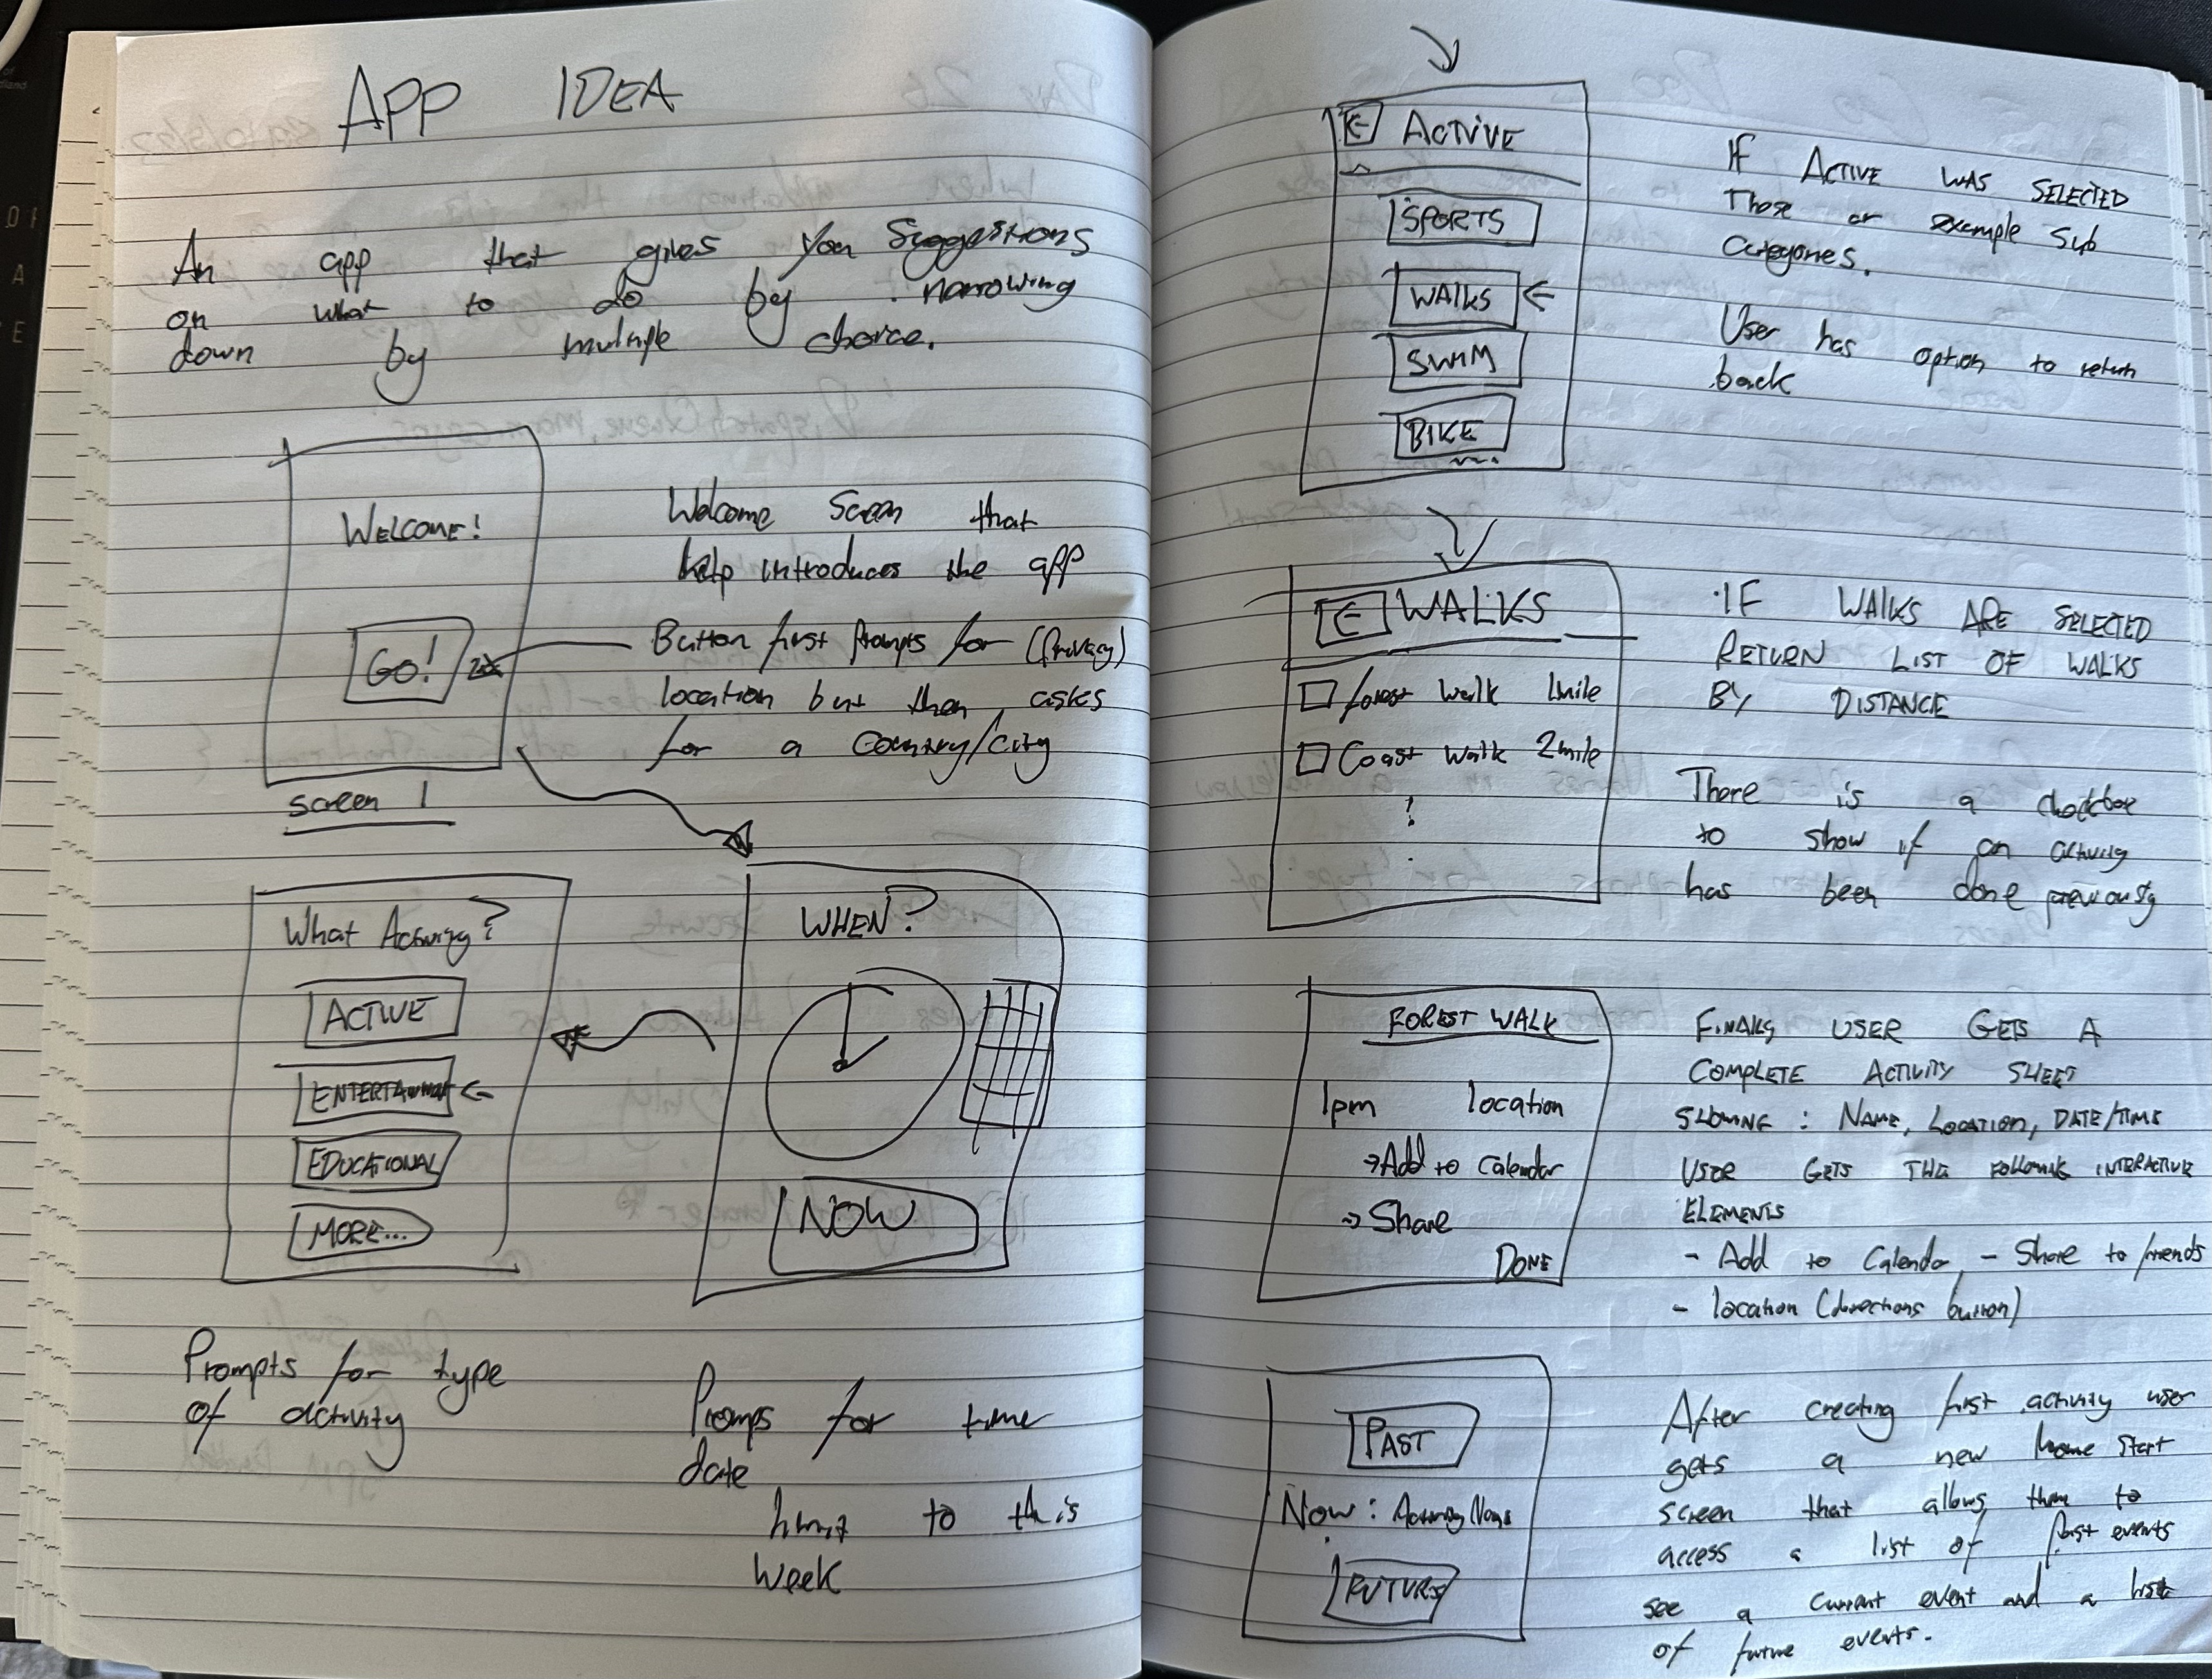 APP IDEA
An app that gives you Suggestions
on what to do by narrowing
down by multiple choice.
WELCOME!
GO!
screen 1
Welcome Screen that
help introduces the app
Button first Prompts for (Privacy)
location but then asks
for a Country/City
What Activity?
ACTIVE
EDUCATIONAL
MORE...
WHEN?
NOW
Prompts for type
of activity
Promps for time
date
limit to this
week
ACTIVE
SPORTS
WALKS
SWIM
BIKE
IF ACTIVE WAS SELECTED
These or example Sub
Categories.
User has option to return
back
WALKS
forest walk 1mile
Coast walk 2mile
IF WALKS ARE SELECTED
RETURN LIST OF WALKS
BY DISTANCE
There is a checkbox
to show if an activity
has been done previously
FOREST WALK
1pm location
→Add to Calendar
→ Share
DONE
FINALLY USER GETS A
COMPLETE ACTIVITY SHEET
SHOWING : NAME, LOCATION, DATE/TIME
USER GETS THE FOLLOWING INTERACTIVE
ELEMENTS
- Add to Calendar - Share to friends
- location (directions button)
PAST
Now : Activity
FUTURE
After creating first activity user
gets a new home start
screen that allows them to
access a list of past events
see a current event and a list
of future events.